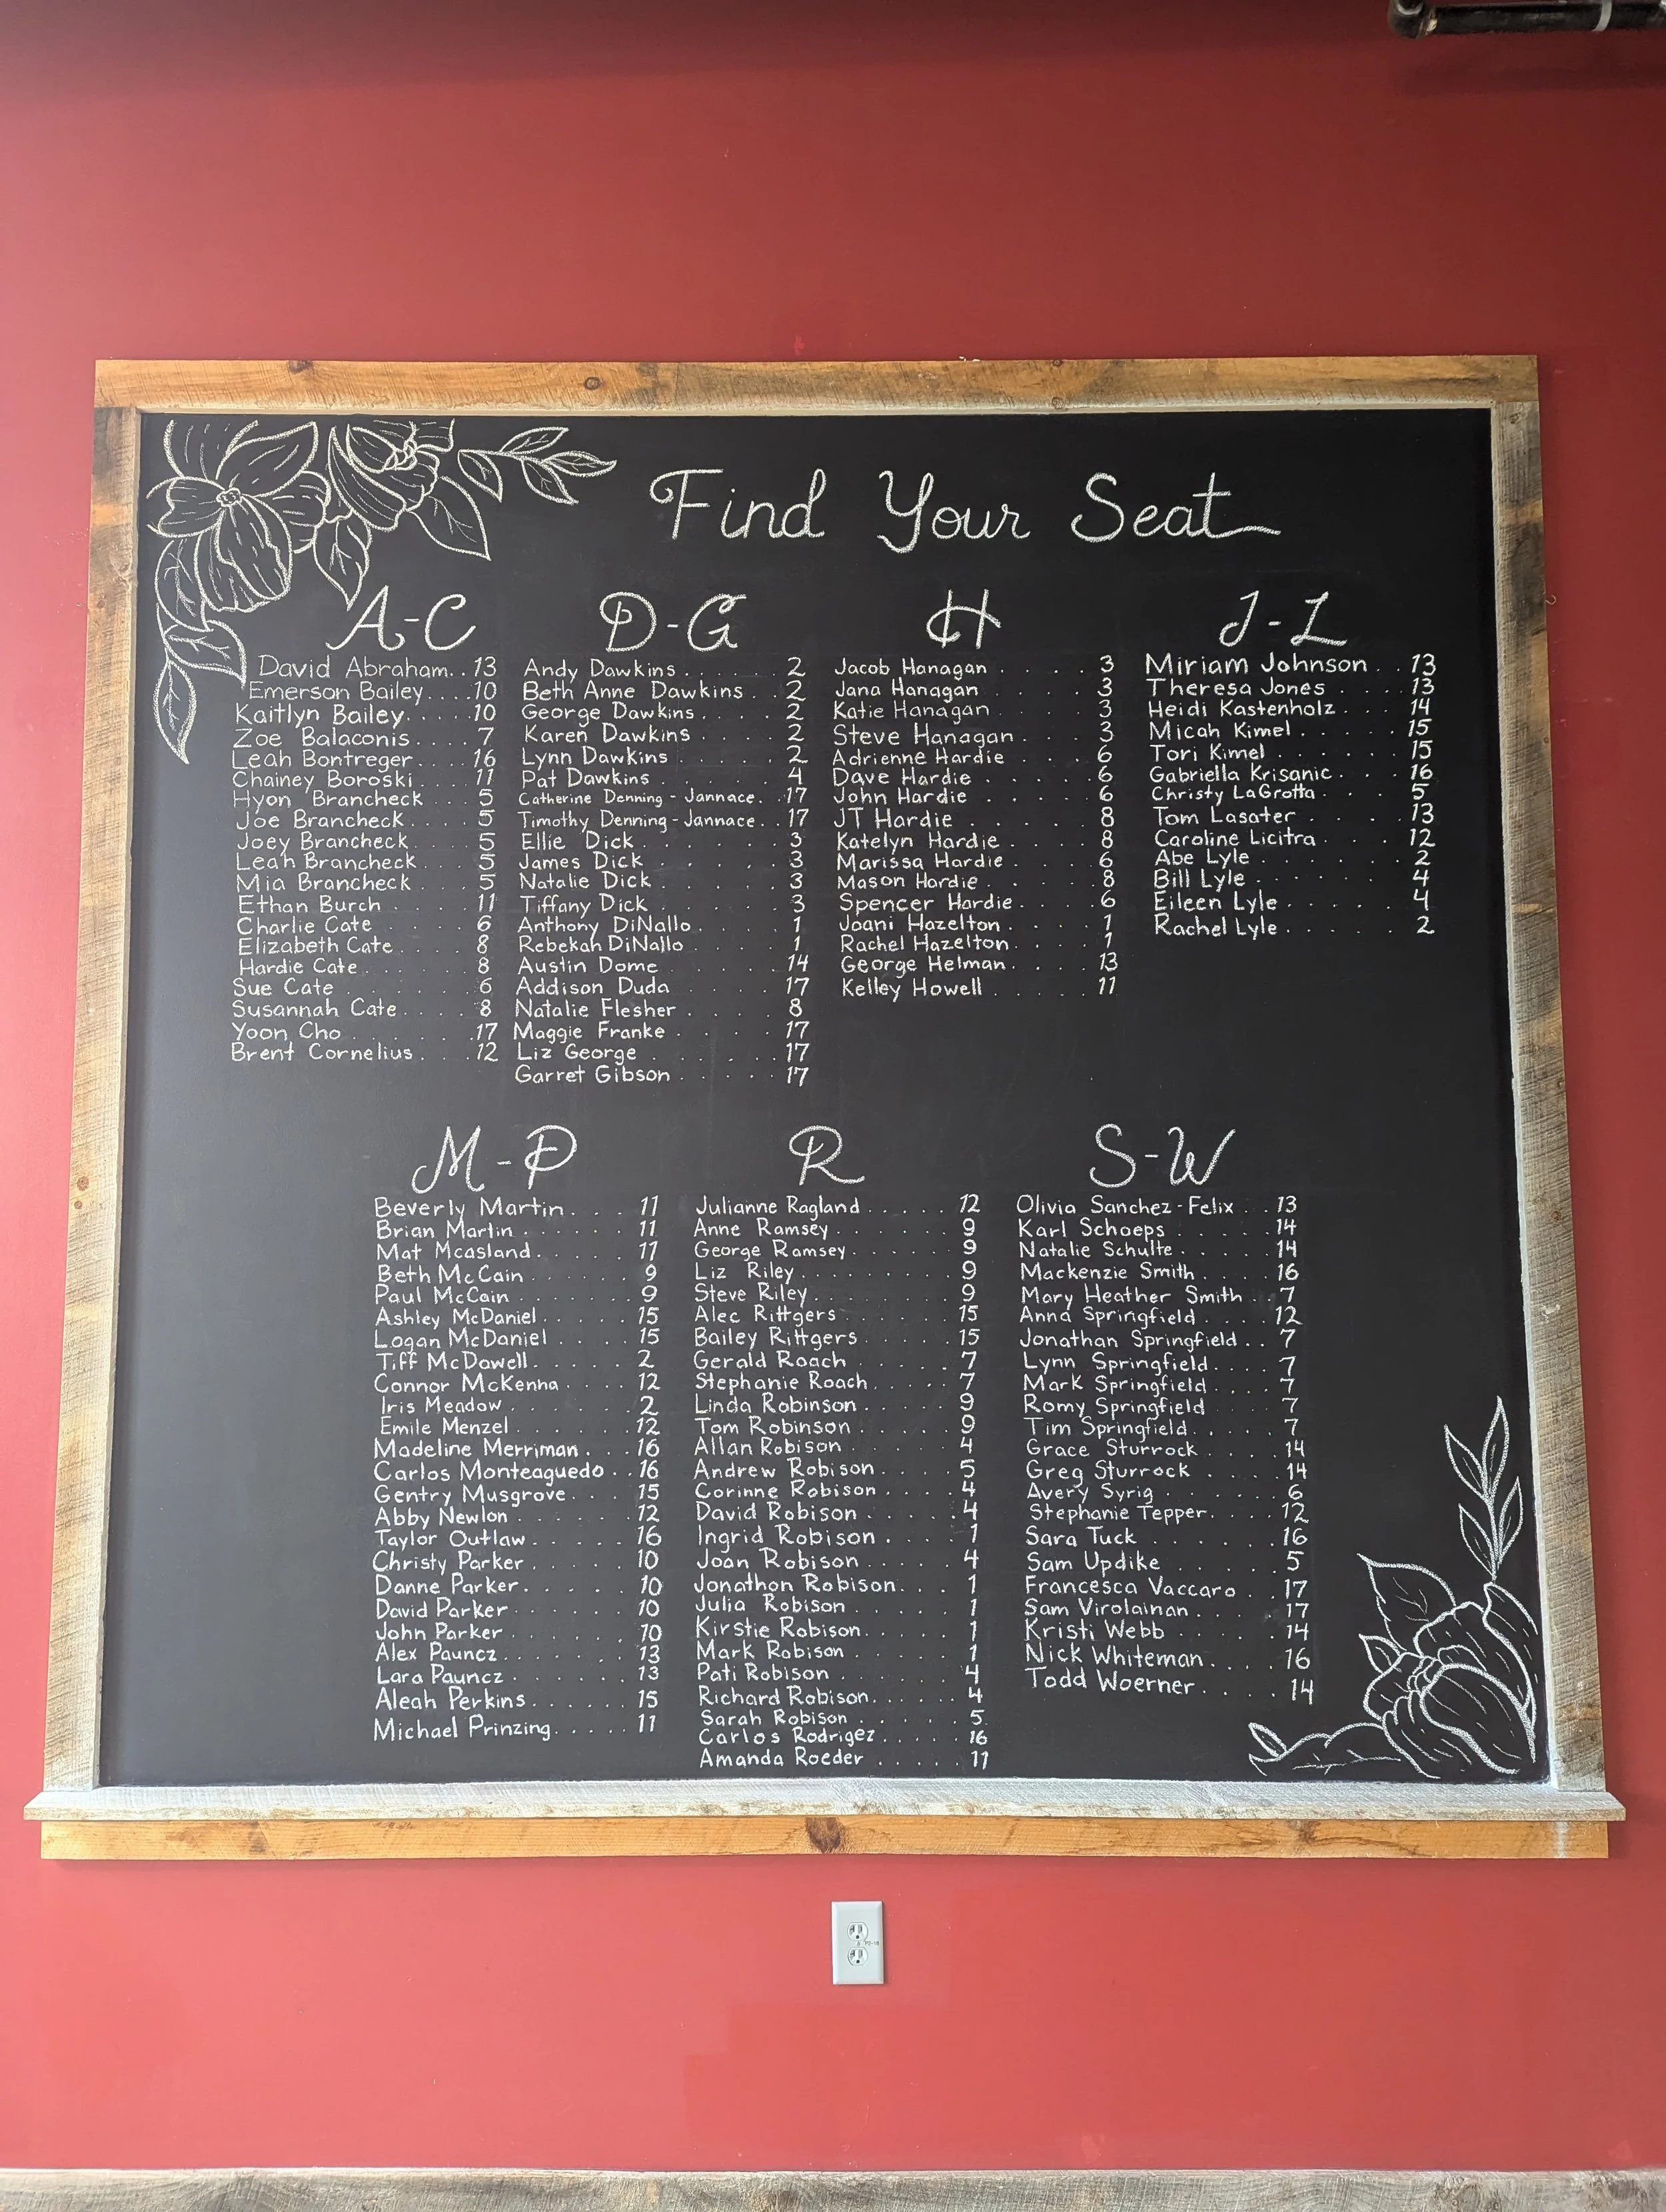 Find Your Seat
A-C
David Abraham.. 13
Emerson Bailey.... 10
Kaitlyn Bailey..... 10
Zoe Balaconis.... 7
Leah Bontreger... 16
Chainey Boroski... 11
Hyon Brancheck... 5
Joe Brancheck.... 5
Joey Brancheck... 5
Leah Brancheck... 5
Mia Brancheck.... 5
Ethan Burch.... 11
Charlie Cate..... 6
Elizabeth Cate.... 8
Hardie Cate..... 8
Sue Cate..... 6
Susannah Cate.... 8
Yoon Cho..... 17
Brent Cornelius... 12
D-G
Andy Dawkins..... 2
Beth Anne Dawkins.. 2
George Dawkins.... 2
Karen Dawkins.... 2
Lynn Dawkins..... 2
Pat Dawkins..... 4
Catherine Denning-Jannace.. 17
Timothy Denning-Jannace.. 17
Ellie Dick...... 3
James Dick..... 3
Natalie Dick..... 3
Tiffany Dick..... 3
Anthony DiNallo.... 1
Rebekah DiNallo.... 1
Austin Dome.... 14
Addison Duda.... 17
Natalie Flesher.... 8
Maggie Franke.... 17
Liz George..... 17
Garret Gibson..... 17
H
Jacob Hanagan.... 3
Jana Hanagan.... 3
Katie Hanagan.... 3
Steve Hanagan... 3
Adrienne Hardie.... 6
Dave Hardie..... 6
John Hardie..... 6
JT Hardie...... 8
Katelyn Hardie.... 8
Marissa Hardie.... 6
Mason Hardie..... 8
Spencer Hardie.... 6
Joani Hazelton.... 1
Rachel Hazelton.... 1
George Helman.... 13
Kelley Howell.... 11
J-L
Miriam Johnson.. 13
Theresa Jones... 13
Heidi Kastenholz... 14
Micah Kimel..... 15
Tori Kimel..... 15
Gabriella Krisanic... 16
Christy LaGrotta... 5
Tom Lasater.... 13
Caroline Licitra.... 12
Abe Lyle...... 2
Bill Lyle...... 4
Eileen Lyle..... 4
Rachel Lyle..... 2
M-P
Beverly Martin... 11
Brian Martin..... 11
Mat Mcasland.... 11
Beth McCain..... 9
Paul McCain..... 9
Ashley McDaniel.... 15
Logan McDaniel.... 15
Tiff McDowell..... 2
Connor McKenna.... 12
Iris Meadow..... 2
Emile Menzel..... 12
Madeline Merriman... 16
Carlos Monteaguedo.. 16
Gentry Musgrove... 15
Abby Newlon..... 12
Taylor Outlaw..... 16
Christy Parker.... 10
Danne Parker..... 10
David Parker..... 10
John Parker..... 10
Alex Pauncz..... 13
Lara Pauncz..... 13
Aleah Perkins..... 15
Michael Prinzing..... 11
R
Julianne Ragland..... 12
Anne Ramsey...... 9
George Ramsey..... 9
Liz Riley........ 9
Steve Riley....... 9
Alec Rittgers..... 15
Bailey Rittgers.... 15
Gerald Roach..... 7
Stephanie Roach.... 7
Linda Robinson.... 9
Tom Robinson..... 9
Allan Robison..... 4
Andrew Robison.... 5
Corinne Robison.... 4
David Robison.... 4
Ingrid Robison.... 1
Joan Robison.... 4
Jonathon Robison... 1
Julia Robison..... 1
Kirstie Robison.... 1
Mark Robison..... 1
Pati Robison..... 4
Richard Robison.... 4
Sarah Robison.... 5
Carlos Rodrigez.... 16
Amanda Roeder.... 11
S-W
Olivia Sanchez-Felix.. 13
Karl Schoeps..... 14
Natalie Schulte.... 14
Mackenzie Smith.... 16
Mary Heather Smith.. 7
Anna Springfield.... 12
Jonathan Springfield.. 7
Lynn Springfield.... 7
Mark Springfield.... 7
Romy Springfield... 7
Tim Springfield.... 7
Grace Sturrock.... 14
Greg Sturrock.... 14
Avery Syrig..... 6
Stephanie Tepper.... 12
Sara Tuck...... 16
Sam Updike..... 5
Francesca Vaccaro.. 17
Sam Virolainan.... 17
Kristi Webb..... 14
Nick Whiteman.... 16
Todd Woerner.... 14